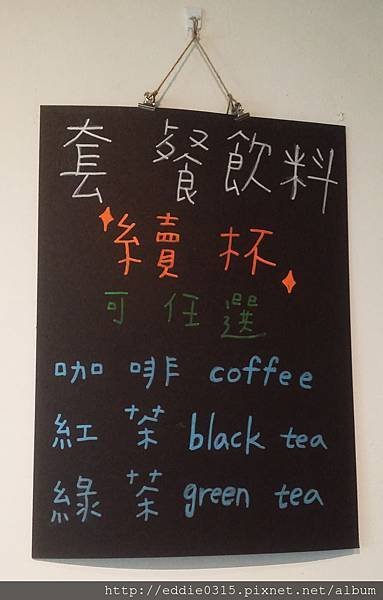 套餐飲料
續杯
可任選
咖啡 coffee
紅茶 black tea
綠茶 green tea
http://eddie0315.pixnet.net/album